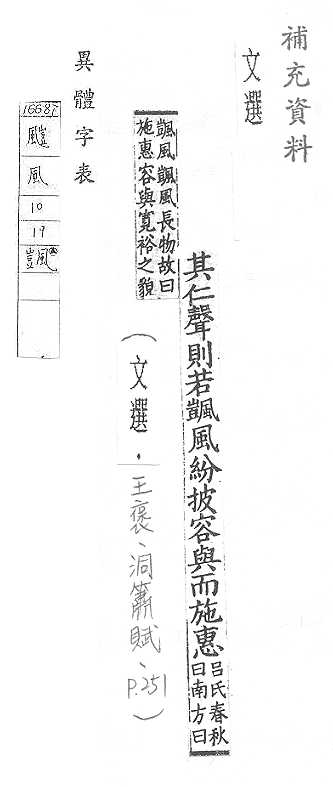 補充資料
文選
其仁聲則若颽風紛披容與而施惠
呂氏春秋
曰南方曰
颽風颽風長物故曰
施惠容與寬裕之貌
(文選.王褒、洞簫賦、P.251)
異體字表
16687
風
10
19
颽